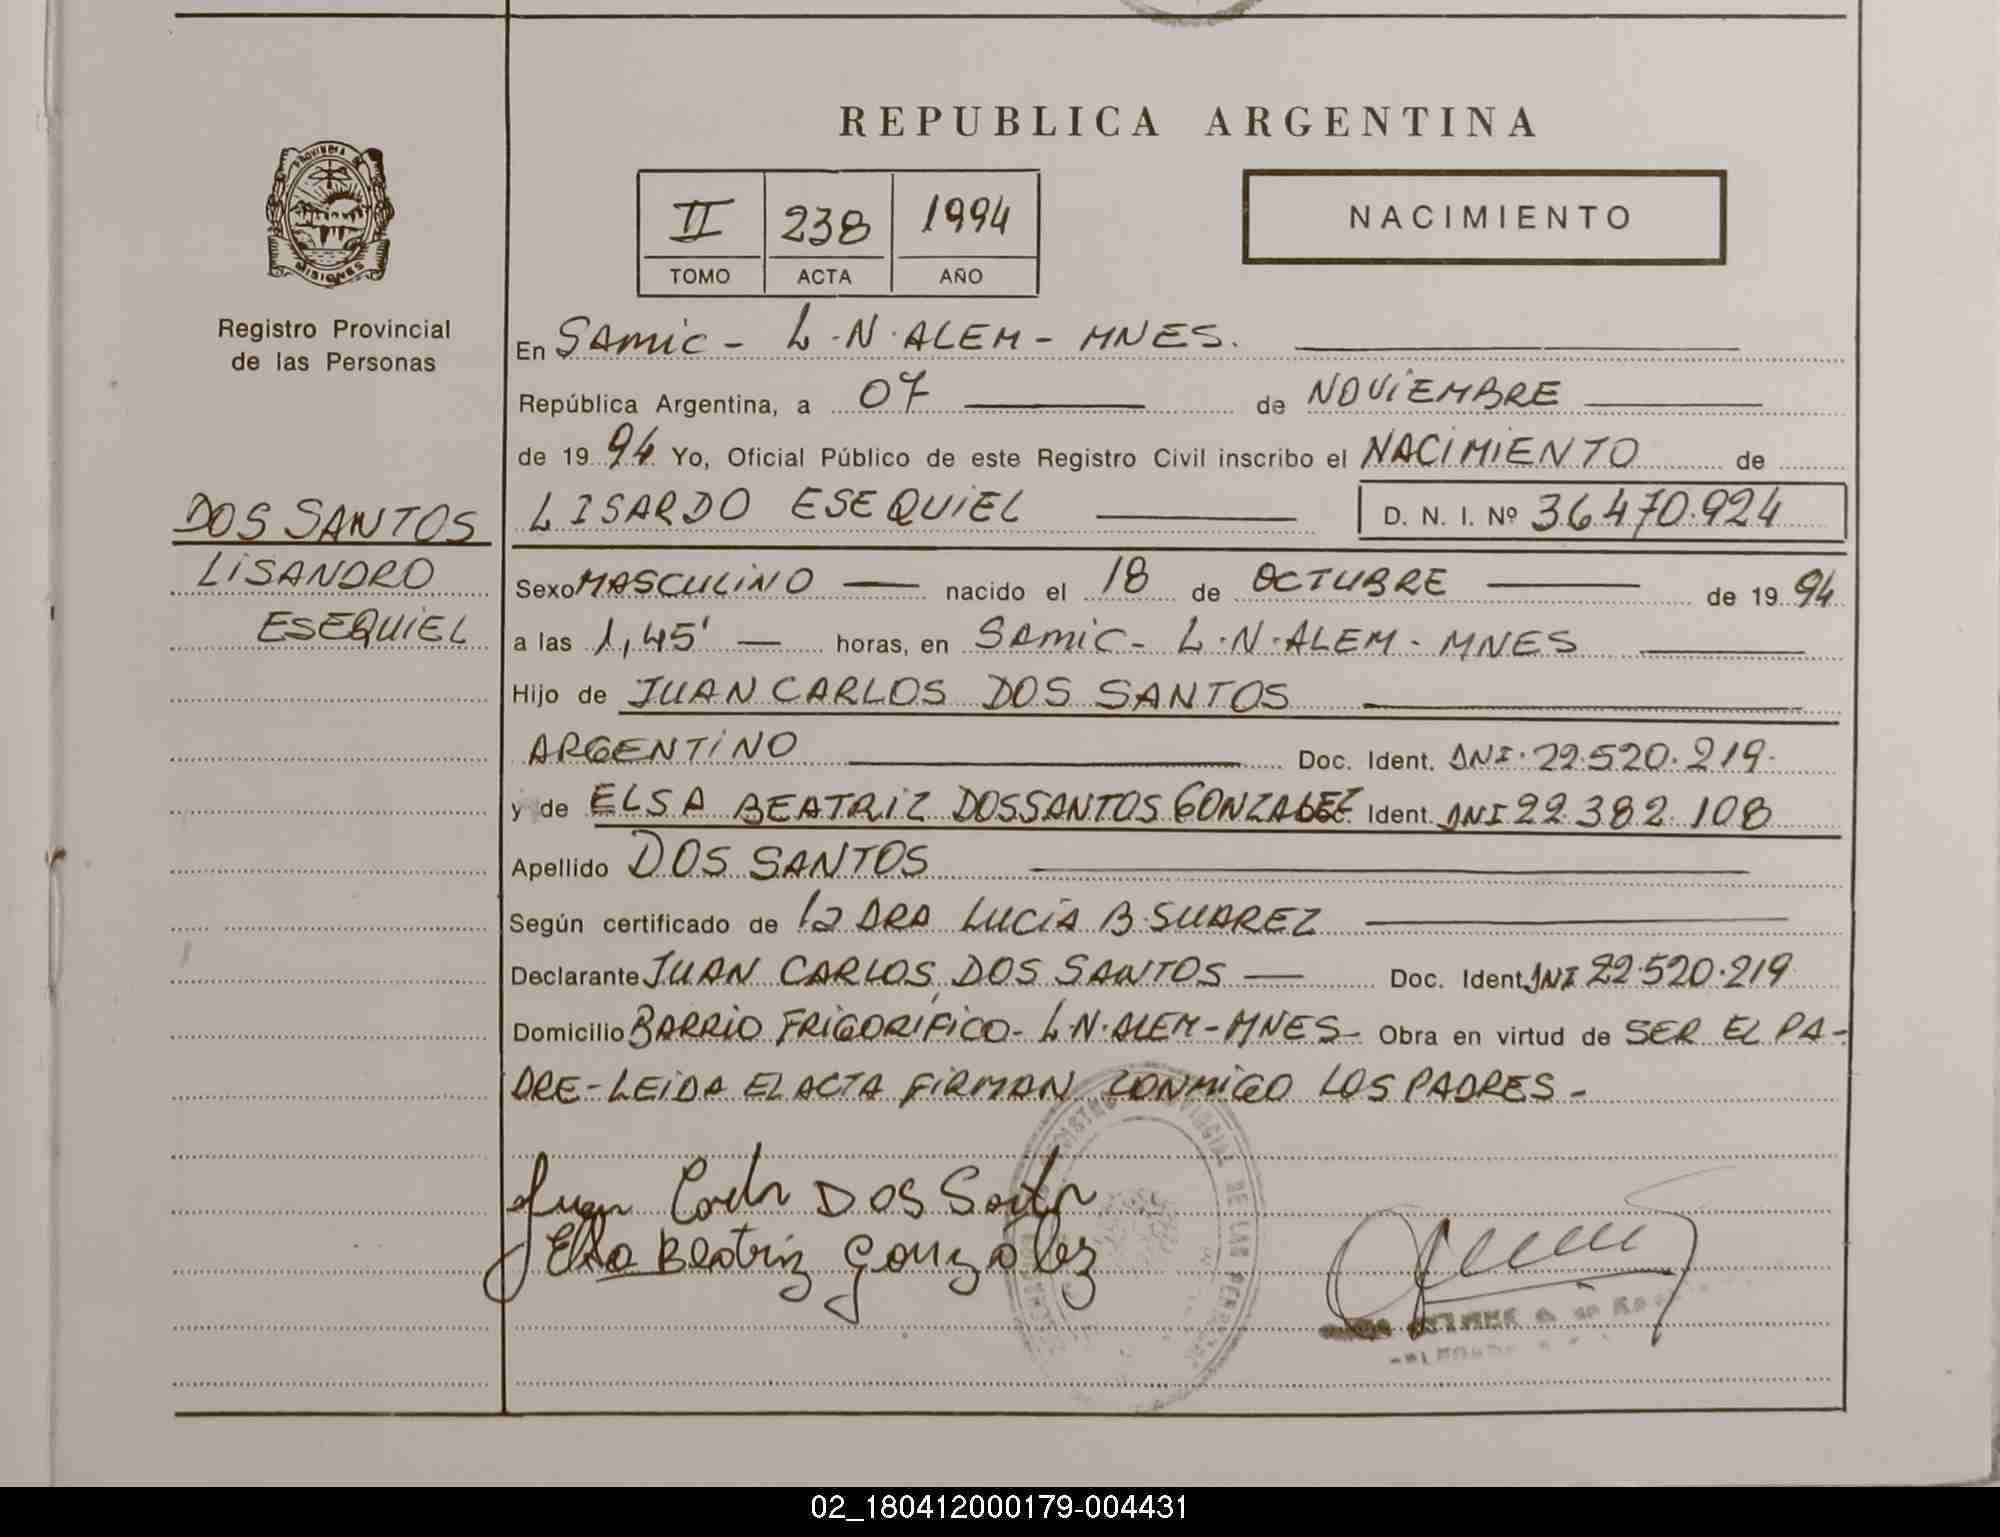 REPUBLICA ARGENTINA
PROVINCIA DE
MISIONES
II 238 1994
TOMO ACTA AÑO
NACIMIENTO
Registro Provincial
de las Personas
DOS SANTOS
LISANDRO
ESEQUIEL
En SAMIC - L.N.ALEM - MNES.
República Argentina, a 07 de NOVIEMBRE
de 1994 Yo, Oficial Público de este Registro Civil inscribo el NACIMIENTO de
LISARDO ESEQUIEL D. N. I. Nº 36.470.924
Sexo MASCULINO nacido el 18 de OCTUBRE de 1994
a las 1,45' horas, en SAMIC - L.N.ALEM - MNES
Hijo de JUAN CARLOS DOS SANTOS
ARGENTINO Doc. Ident. DNI. 22.520.219.
y de ELSA BEATRIZ DOSSANTOS GONZALEZ Ident. DNI 22.382.108
Apellido DOS SANTOS
Según certificado de la DRA LUCIA B. SUAREZ
Declarante JUAN CARLOS DOS SANTOS Doc. Ident. DNI 22.520.219
Domicilio BARRIO FRIGORIFICO - L.N.ALEM - MNES - Obra en virtud de SER EL PA-
DRE - LEIDA EL ACTA FIRMAN CONMIGO LOS PADRES -
Juan Carlos DOS Santos
Elsa Beatriz Gonzalez
02_180412000179-004431